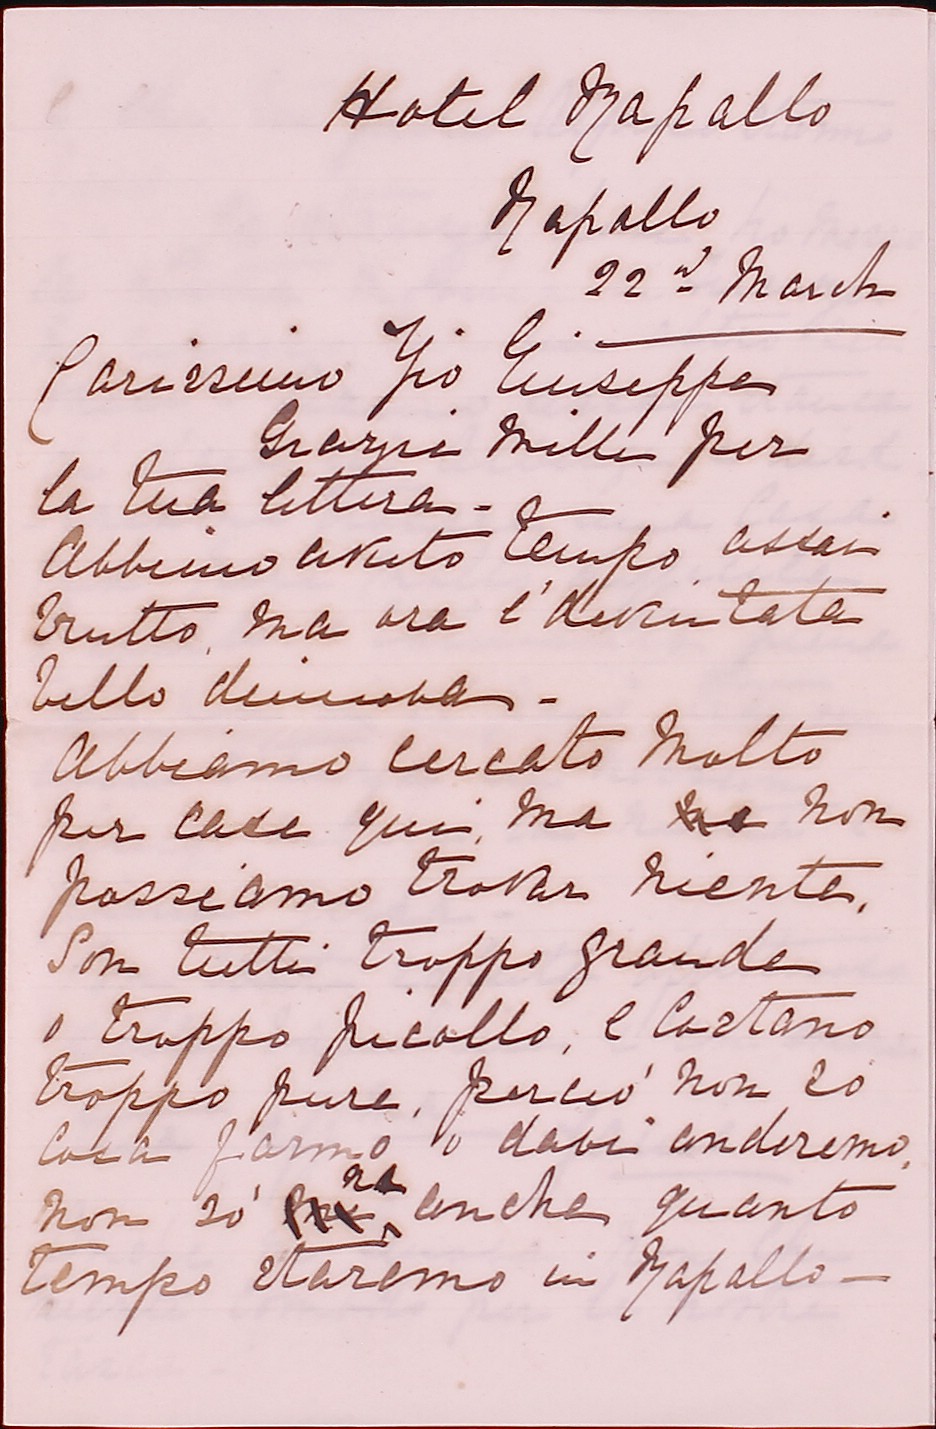 Hotel Rapallo
Rapallo
22nd March
Carissimo Zio Giuseppe
Grazie mille per
la tua lettera -
Abbimo avuto tempo assai
brutto, ma ora e' deventata
bello dinuova -
Abbiamo cercato molto
per case qui, ma non
possiamo trovar niente.
Son tutti troppo grande
o troppo picollo, e costano
troppo pure, perció non so
cosa farmo o dovi anderemo,
non só ne anche quanto
tempo staremo in Rapallo -